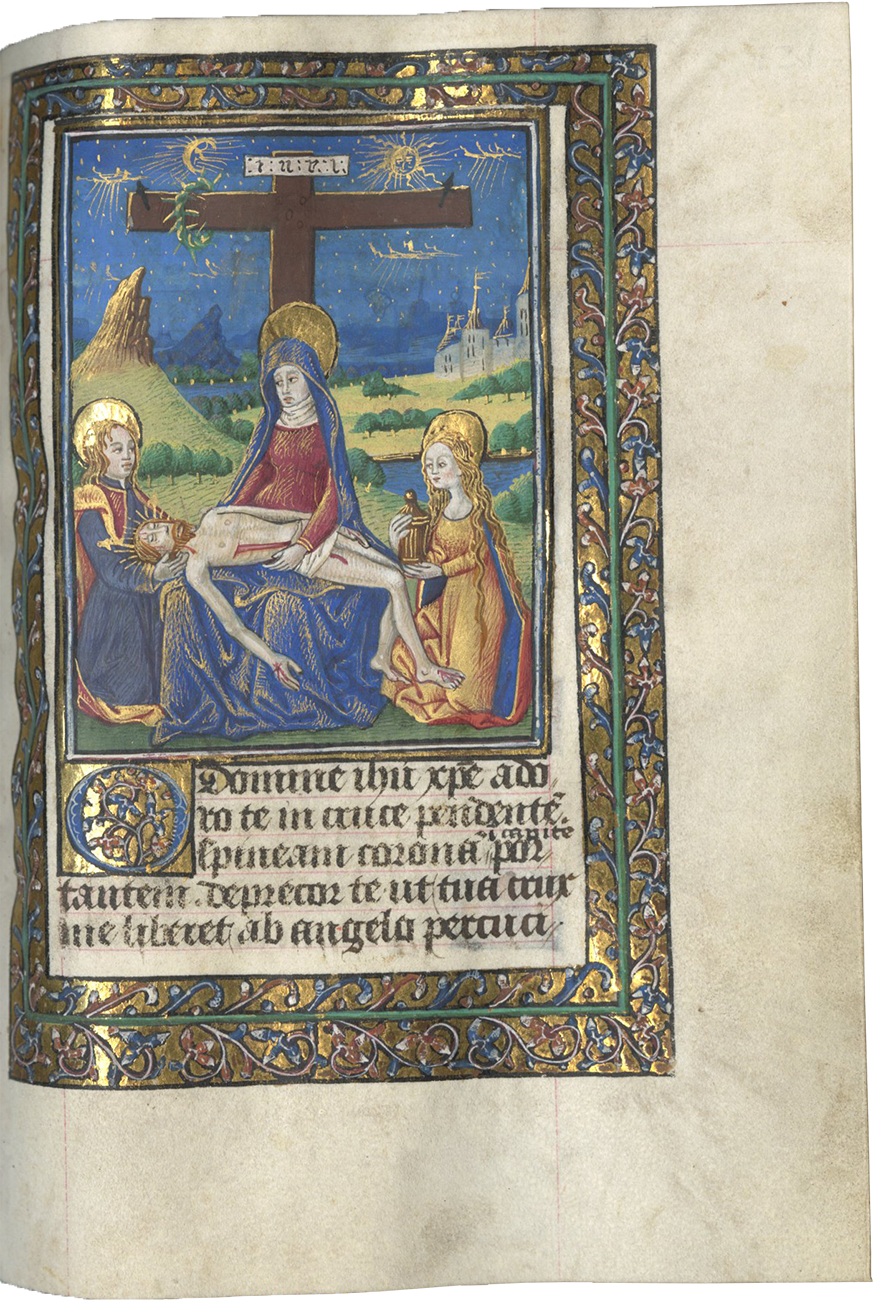 ·i·n·r·i·
O Domine ihu xpe ado
ro te in cruce pendentē.
ī capite
spineam coronā por
tantem. deprecor te ut tua crux
me liberet ab angelo percuci